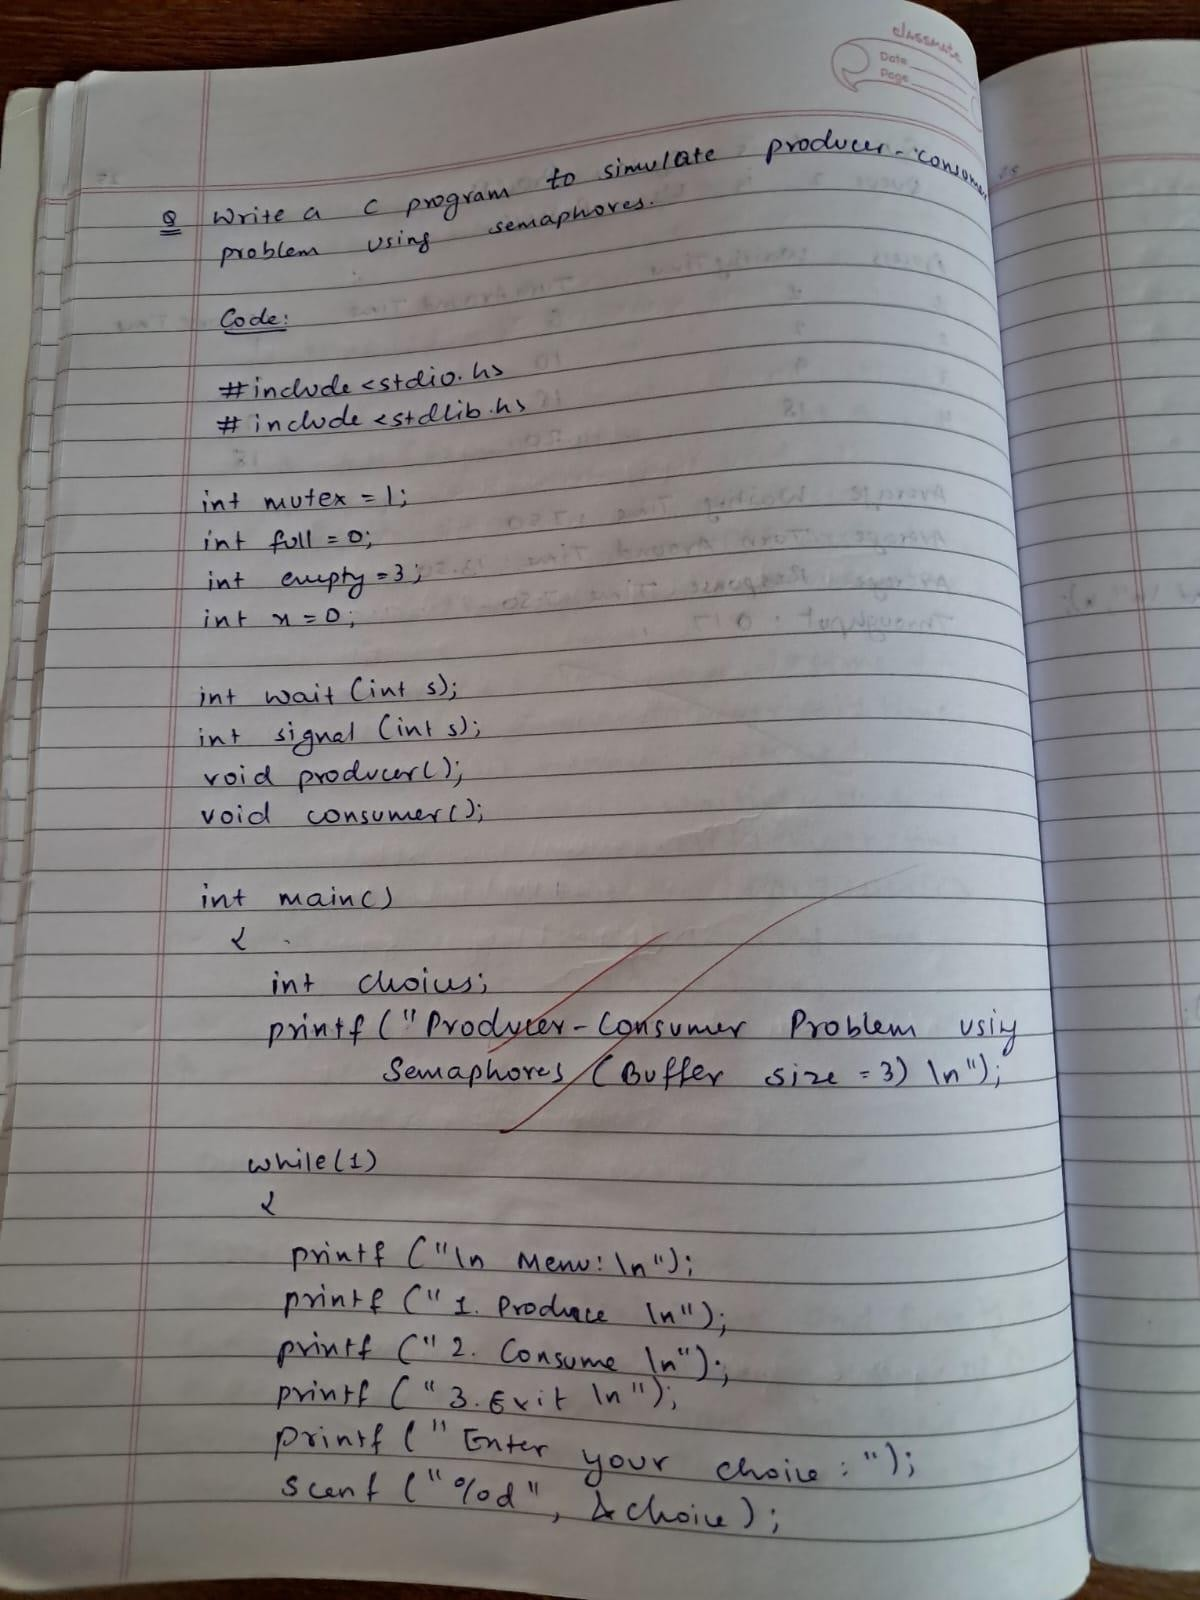 classmate
Date
Page
Q Write a C program to simulate producer-consumer
problem using semaphores.
Code:
#include <stdio.h>
# include <stdlib.h>
int mutex = 1;
int full = 0;
int empty = 3;
int x = 0;
int wait (int s);
int signal (int s);
void producer();
void consumer();
int main()
{
int choice;
printf ("Producer-Consumer Problem using
Semaphores (Buffer size = 3) \n");
while(1)
{
printf ("\n Menu: \n");
printf (" 1. Produce \n");
printf (" 2. Consume \n");
printf (" 3. Exit \n");
printf (" Enter your choice : ");
scanf ("%d", &choice);